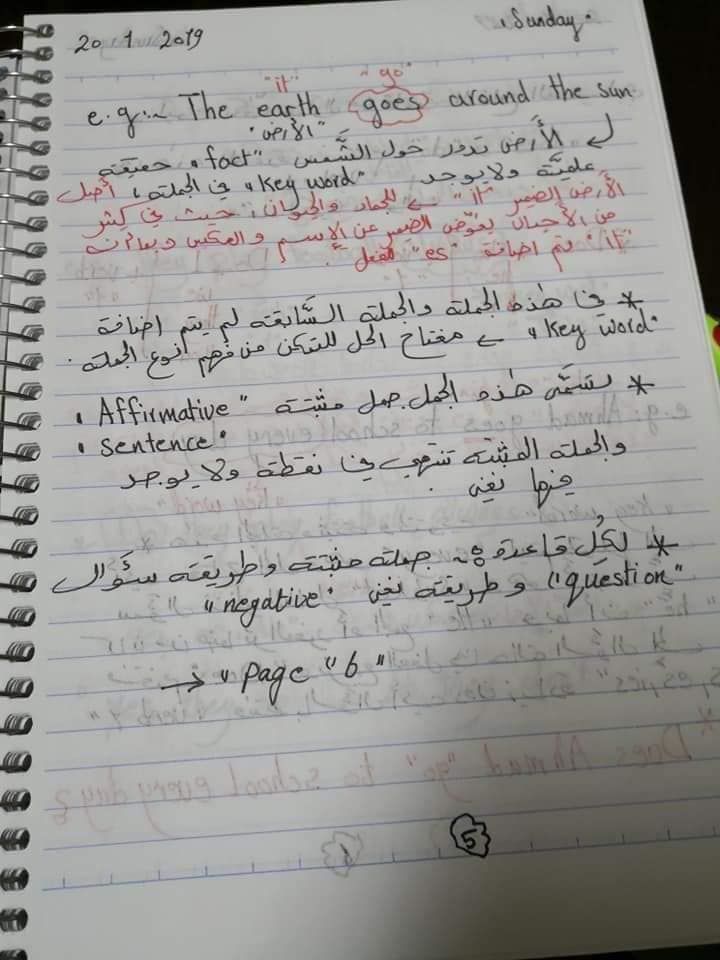 20 1 2019
Sunday.
"it" "go"
e.g:- The earth goes around the sun
"الأرض"
الأَرض تدور حول الشَّمس "fact" حقيقة
علميَّة ولا يوجد "Key word" في الجملة، أصل
الأَرض الضمير "it" ← للجماد والحيوان، حيث في كثير
من الأحيان يعوّض الضمير عن الإسم والعكس وبما أنه
"it" تم اضافة "es" للفعل.
* في هٰذه الجملة والجملة السَّابقة لم يتم اضافة
"Key word" ← مفتاح الحل للتمكن من فهم نوع الجملة.
* تسمَّى هٰذه الجمل جمل مثبتة "Affirmative
sentence"
والجملة المثبتة تنتهي في نقطة ولا يوجد
فيها نفي.
* لكُلِ قاعدة :- جملة مثبتة وطريقة سؤال
"question" وطريقة نفي "negative"
→ "page "6"
5